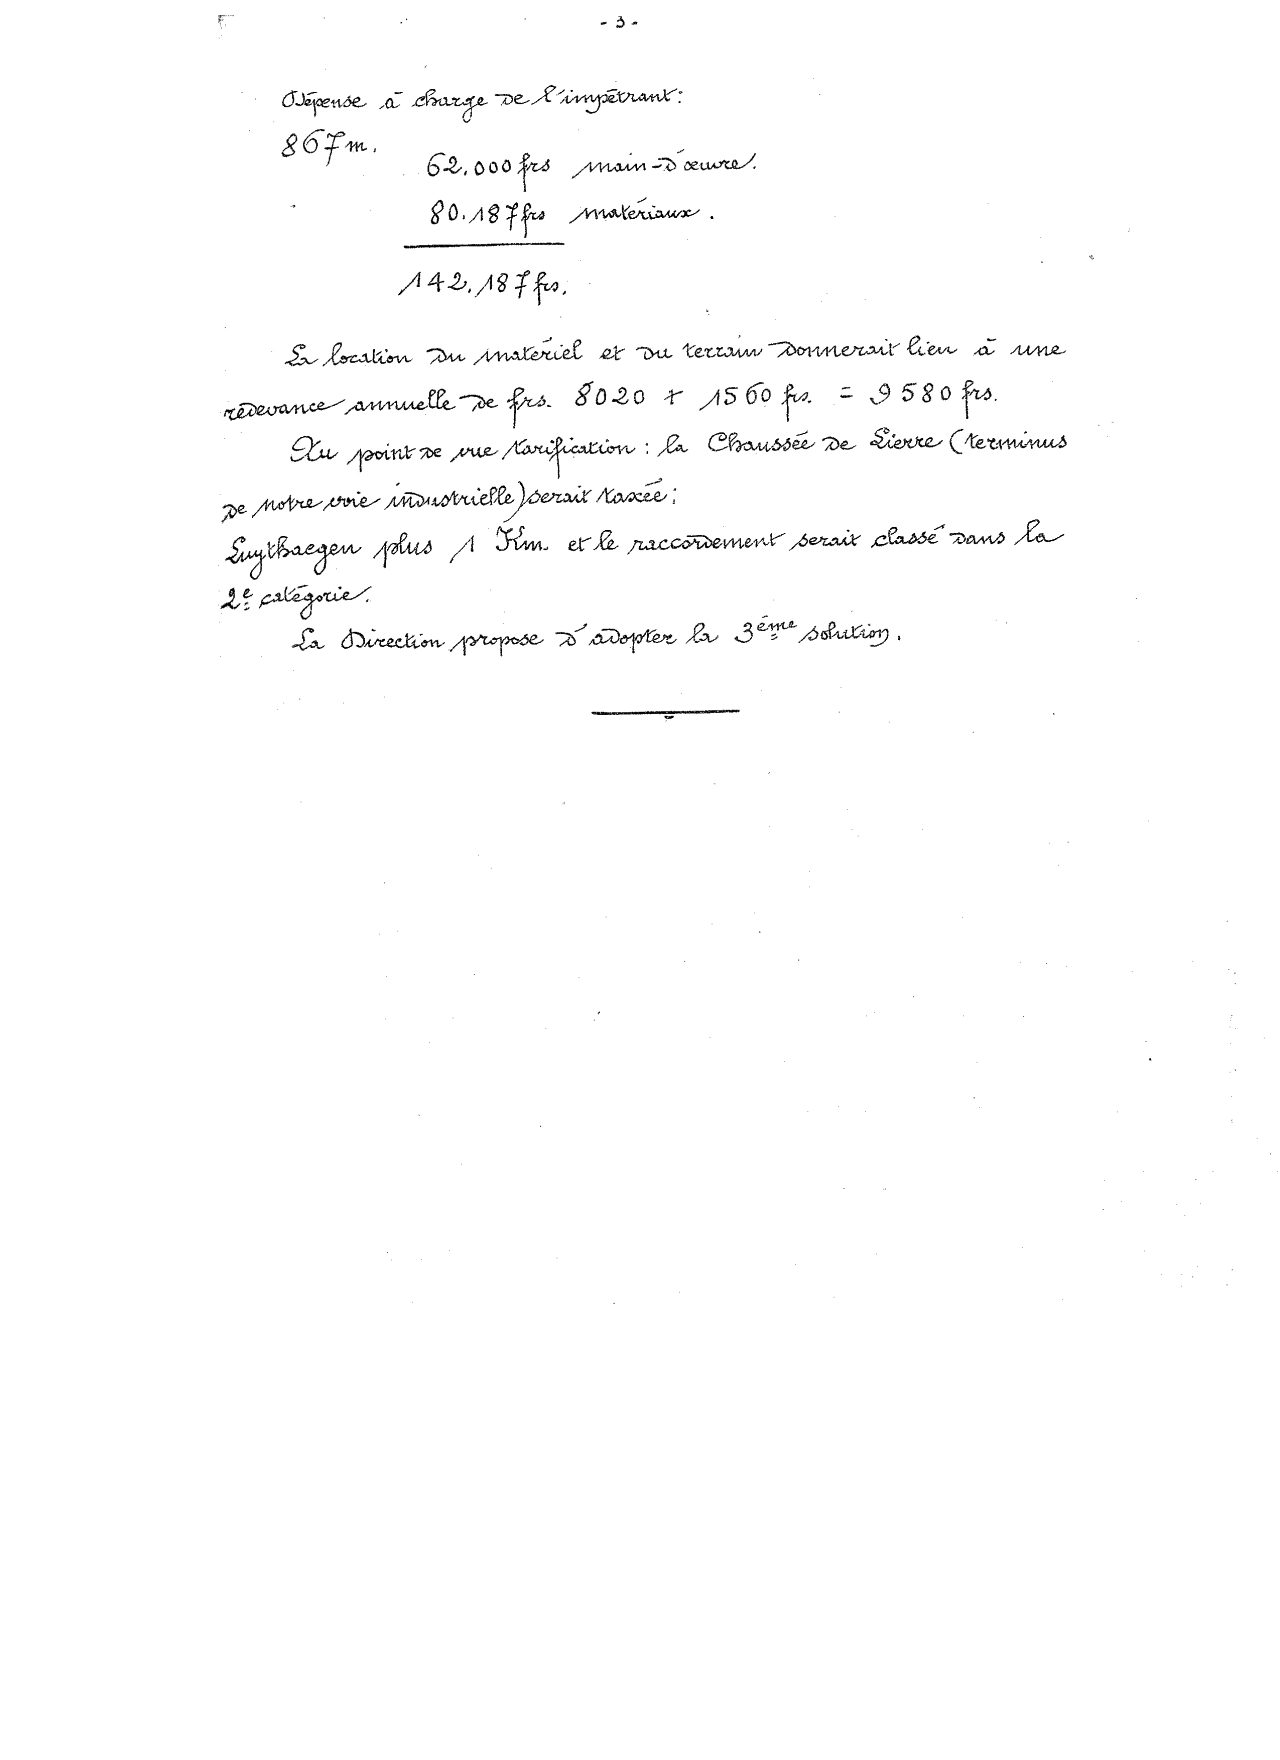 - 3 -
Dépense à charge de l'impétrant:
867 m.
62.000 frs main-d'œuvre.
80.187 frs matériaux.
142.187 frs.
La location du matériel et du terrain donnerait lieu à une
redevance annuelle de frs. 8020 + 1560 frs. = 9580 frs.
Au point de vue tarification : la Chaussée de Lierre (terminus
de notre voie industrielle) serait taxée;
Luythaegen plus 1 Km. et le raccordement serait classé dans la
2e catégorie.
La Direction propose d'adopter la 3ème solution.